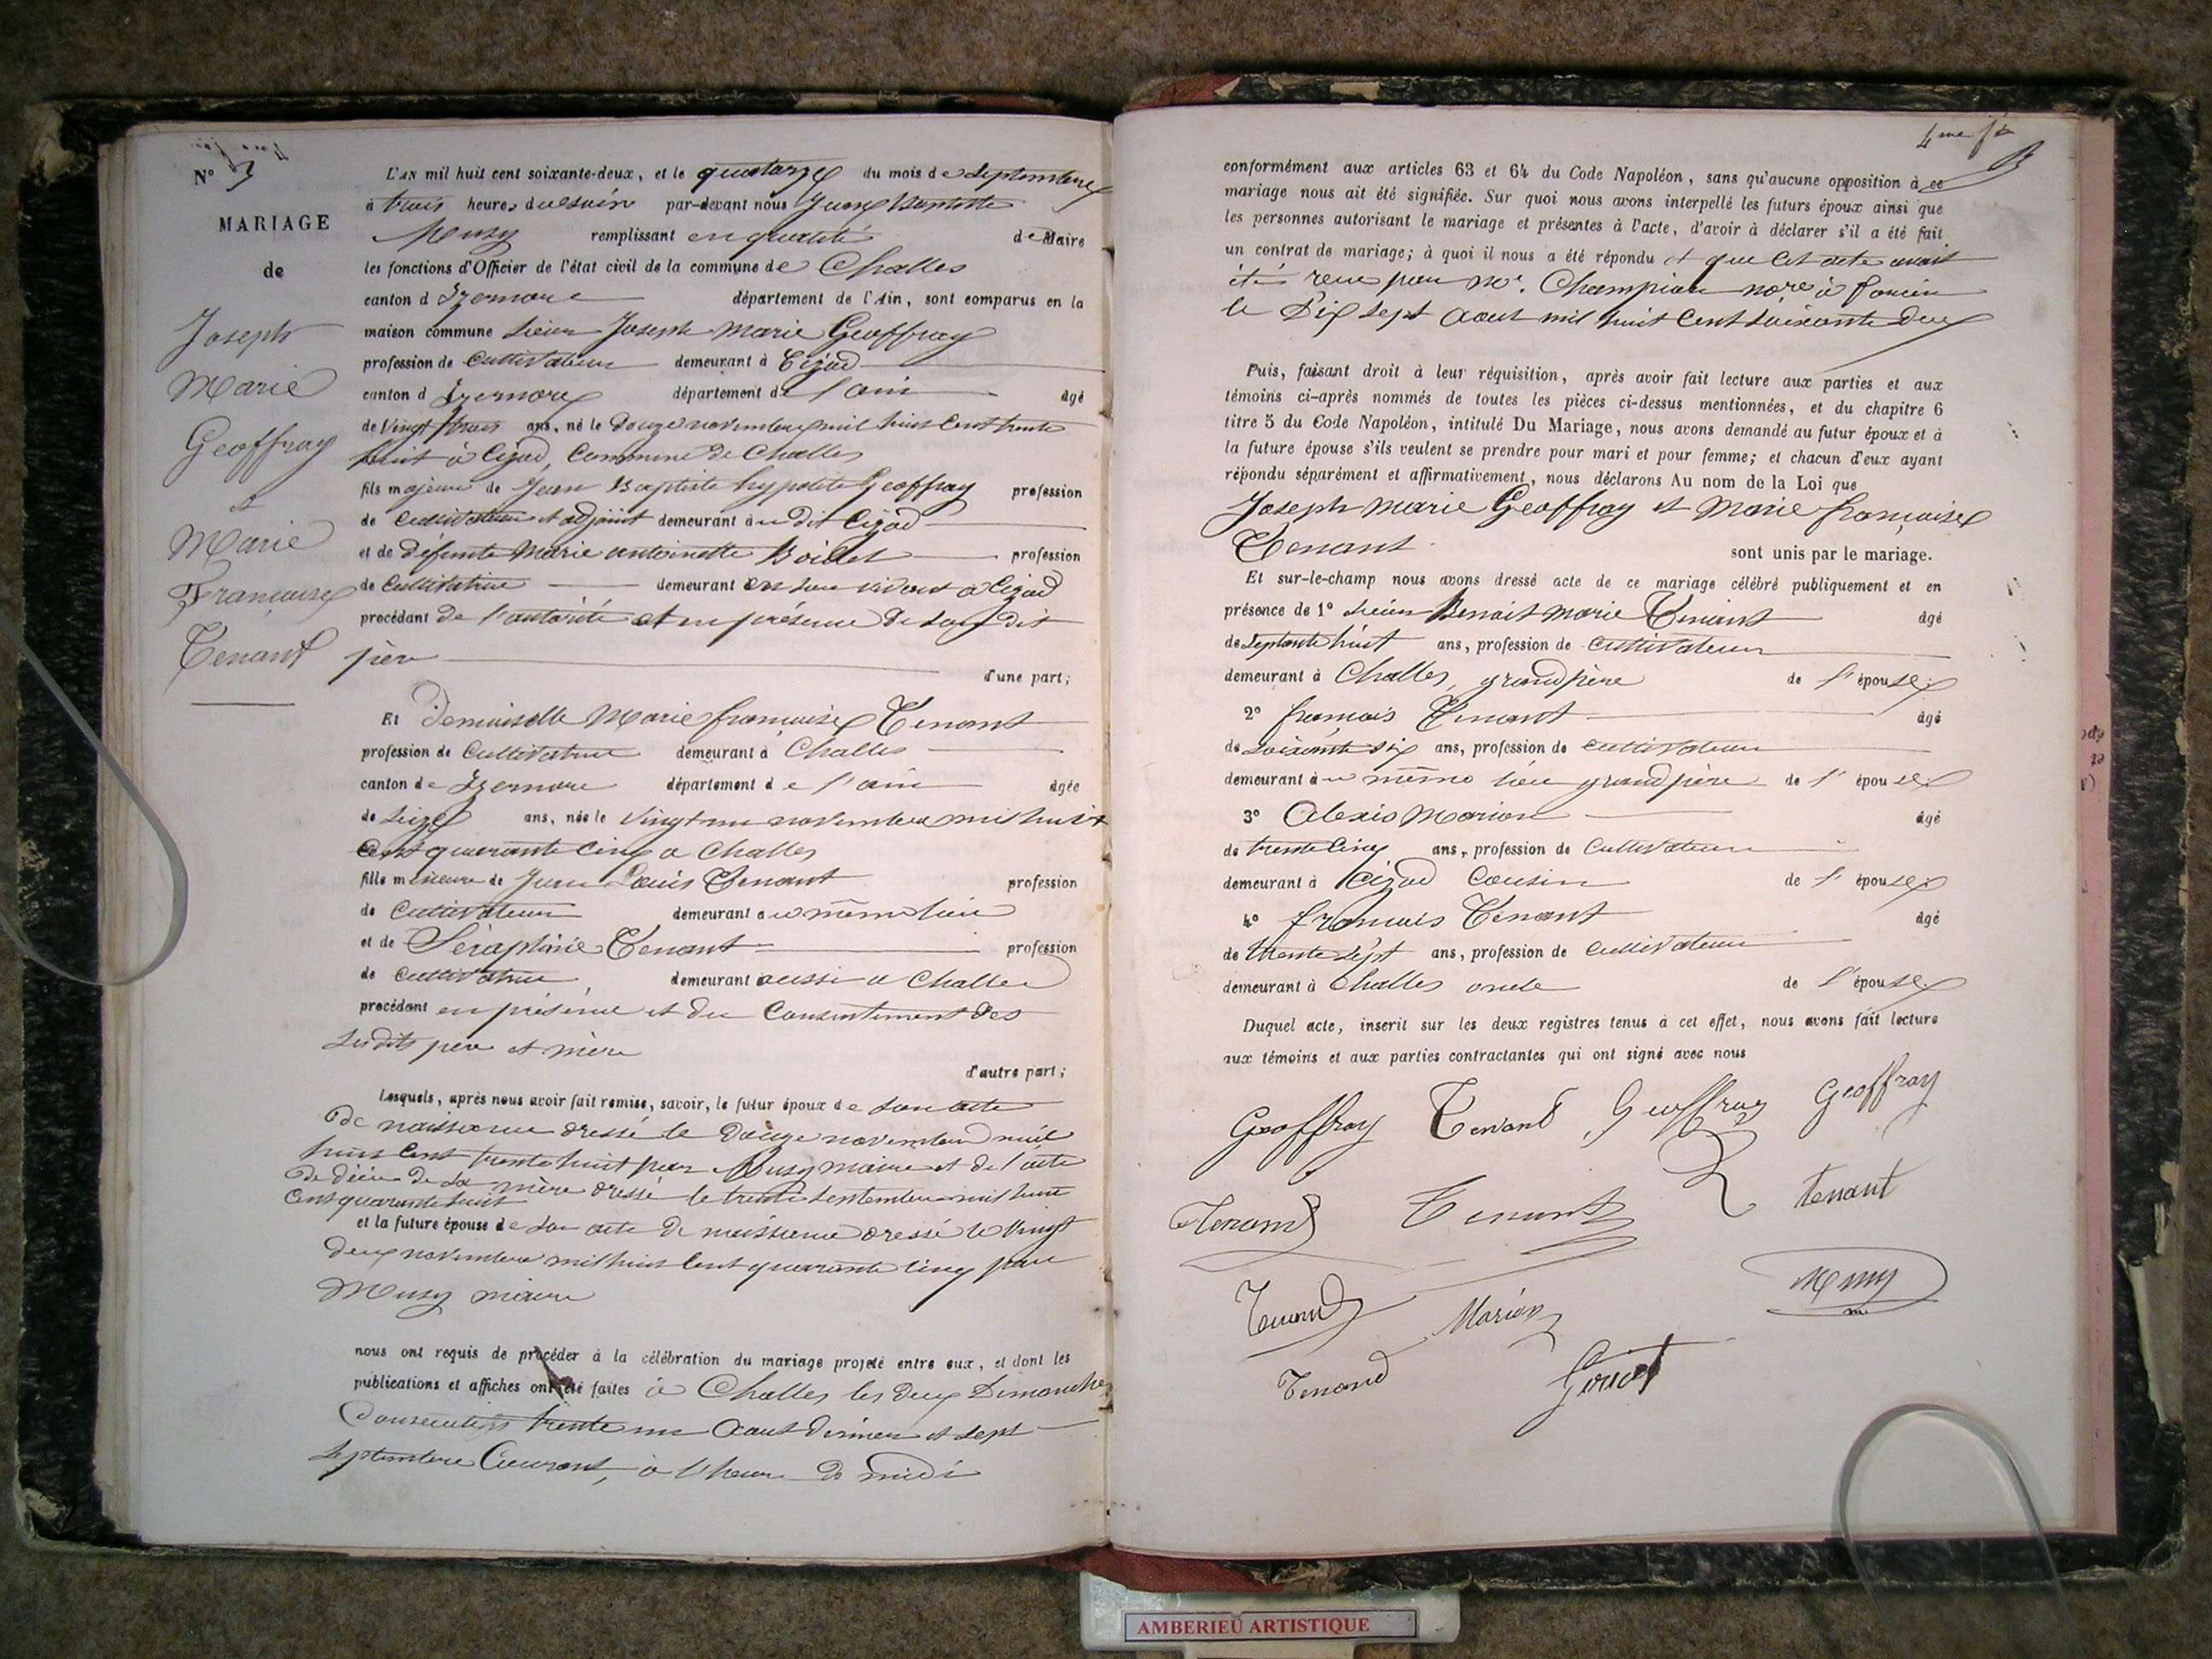 N° 3
MARIAGE
de
Joseph
Marie
Geoffray
et
Marie
Françoise
Tenant
L'AN mil huit cent soixante-deux, et le quatorze du mois de Septembre
à trois heures du soir par-devant nous Jean Baptiste
Musy remplissant en qualité de Maire
les fonctions d'Officier de l'état civil de la commune de Challes
canton d Izernore département de l'Ain, sont comparus en la
maison commune Sieur Joseph Marie Geoffray
profession de Cultivateur demeurant à Cizod
canton d Izernore département de l'ain âgé
de Vingt trois ans, né le douze novembre mil huit Cent trente
huit à Cizod, Commune de Challes
fils majeur de Jean Baptiste hypolite Geoffray profession
de Cultivateur et adjoint demeurant au dit Cizod
et de défunte Marie antoinette Boillet profession
de Cultivatrice demeurant en son vivant à Cizod
procédant de l'autorité et en présence de son dit
père
d'une part;
Et Demoiselle Marie françoise Tenant
profession de Cultivatrice demeurant à Challes
canton de Izernore département de l'ain âgée
de Seize ans, née le Vingt un novembre mil huit
Cent quarante Cinq à Challes
fille mineure de Jean Louis Tenant profession
de Cultivateur demeurant au même lieu
et de Séraphine Tenant profession
de Cultivatrice demeurant aussi à Challes
procédant en présence et du Consentement des
susdits père et mère
d'autre part;
Lesquels, après nous avoir fait remise, savoir, le futur époux de son acte
de naissance dressé le Douze novembre mil
huit Cent trente huit par Musy maire et de l'acte
de décès de sa mère dressé le trente septembre mil huit
Cent quarante huit
et la future épouse de son acte de naissance dressé le Vingt
deux novembre mil huit Cent quarante Cinq par
Musy maire
nous ont requis de procéder à la célébration du mariage projeté entre eux, et dont les
publications et affiches ont été faites à Challes les deux Dimanches
Consécutifs trente un Aout dernier et sept
Septembre Courant, à l'heure de midi
4me ft
conformément aux articles 63 et 64 du Code Napoléon, sans qu'aucune opposition à ce
mariage nous ait été signifiée. Sur quoi nous avons interpellé les futurs époux ainsi que
les personnes autorisant le mariage et présentes à l'acte, d'avoir à déclarer s'il a été fait
un contrat de mariage; à quoi il nous a été répondu et que Cet acte avait
été reçu par Me. Champion nore à Poncin
le Dix sept Aout mil huit Cent soixante deux
Puis, faisant droit à leur réquisition, après avoir fait lecture aux parties et aux
témoins ci-après nommés de toutes les pièces ci-dessus mentionnées, et du chapitre 6
titre 5 du Code Napoléon, intitulé Du Mariage, nous avons demandé au futur époux et à
la future épouse s'ils veulent se prendre pour mari et pour femme; et chacun d'eux ayant
répondu séparément et affirmativement, nous déclarons Au nom de la Loi que
Joseph Marie Geoffray et Marie françoise
Tenant sont unis par le mariage.
Et sur-le-champ nous avons dressé acte de ce mariage célébré publiquement et en
présence de 1° Sieur Benoit Marie Tenant âgé
de Septante huit ans, profession de Cultivateur
demeurant à Challes, grand père de l'épouse
2° françois Tenant âgé
de Soixante six ans, profession de Cultivateur
demeurant au même lieu grand père de l'épouse
3° Alexis Marion âgé
de trente Cinq ans, profession de Cultivateur
demeurant à Cizod Cousin de l'épouse
4° françois Tenant âgé
de trente sept ans, profession de Cultivateur
demeurant à Challes oncle de l'épouse
Duquel acte, inscrit sur les deux registres tenus à cet effet, nous avons fait lecture
aux témoins et aux parties contractantes qui ont signé avec nous
Geoffray Tenant Geoffray Geoffray
Tenant Tenant Tenant
Tenant Marion Musy
Tenand
AMBERIEU ARTISTIQUE